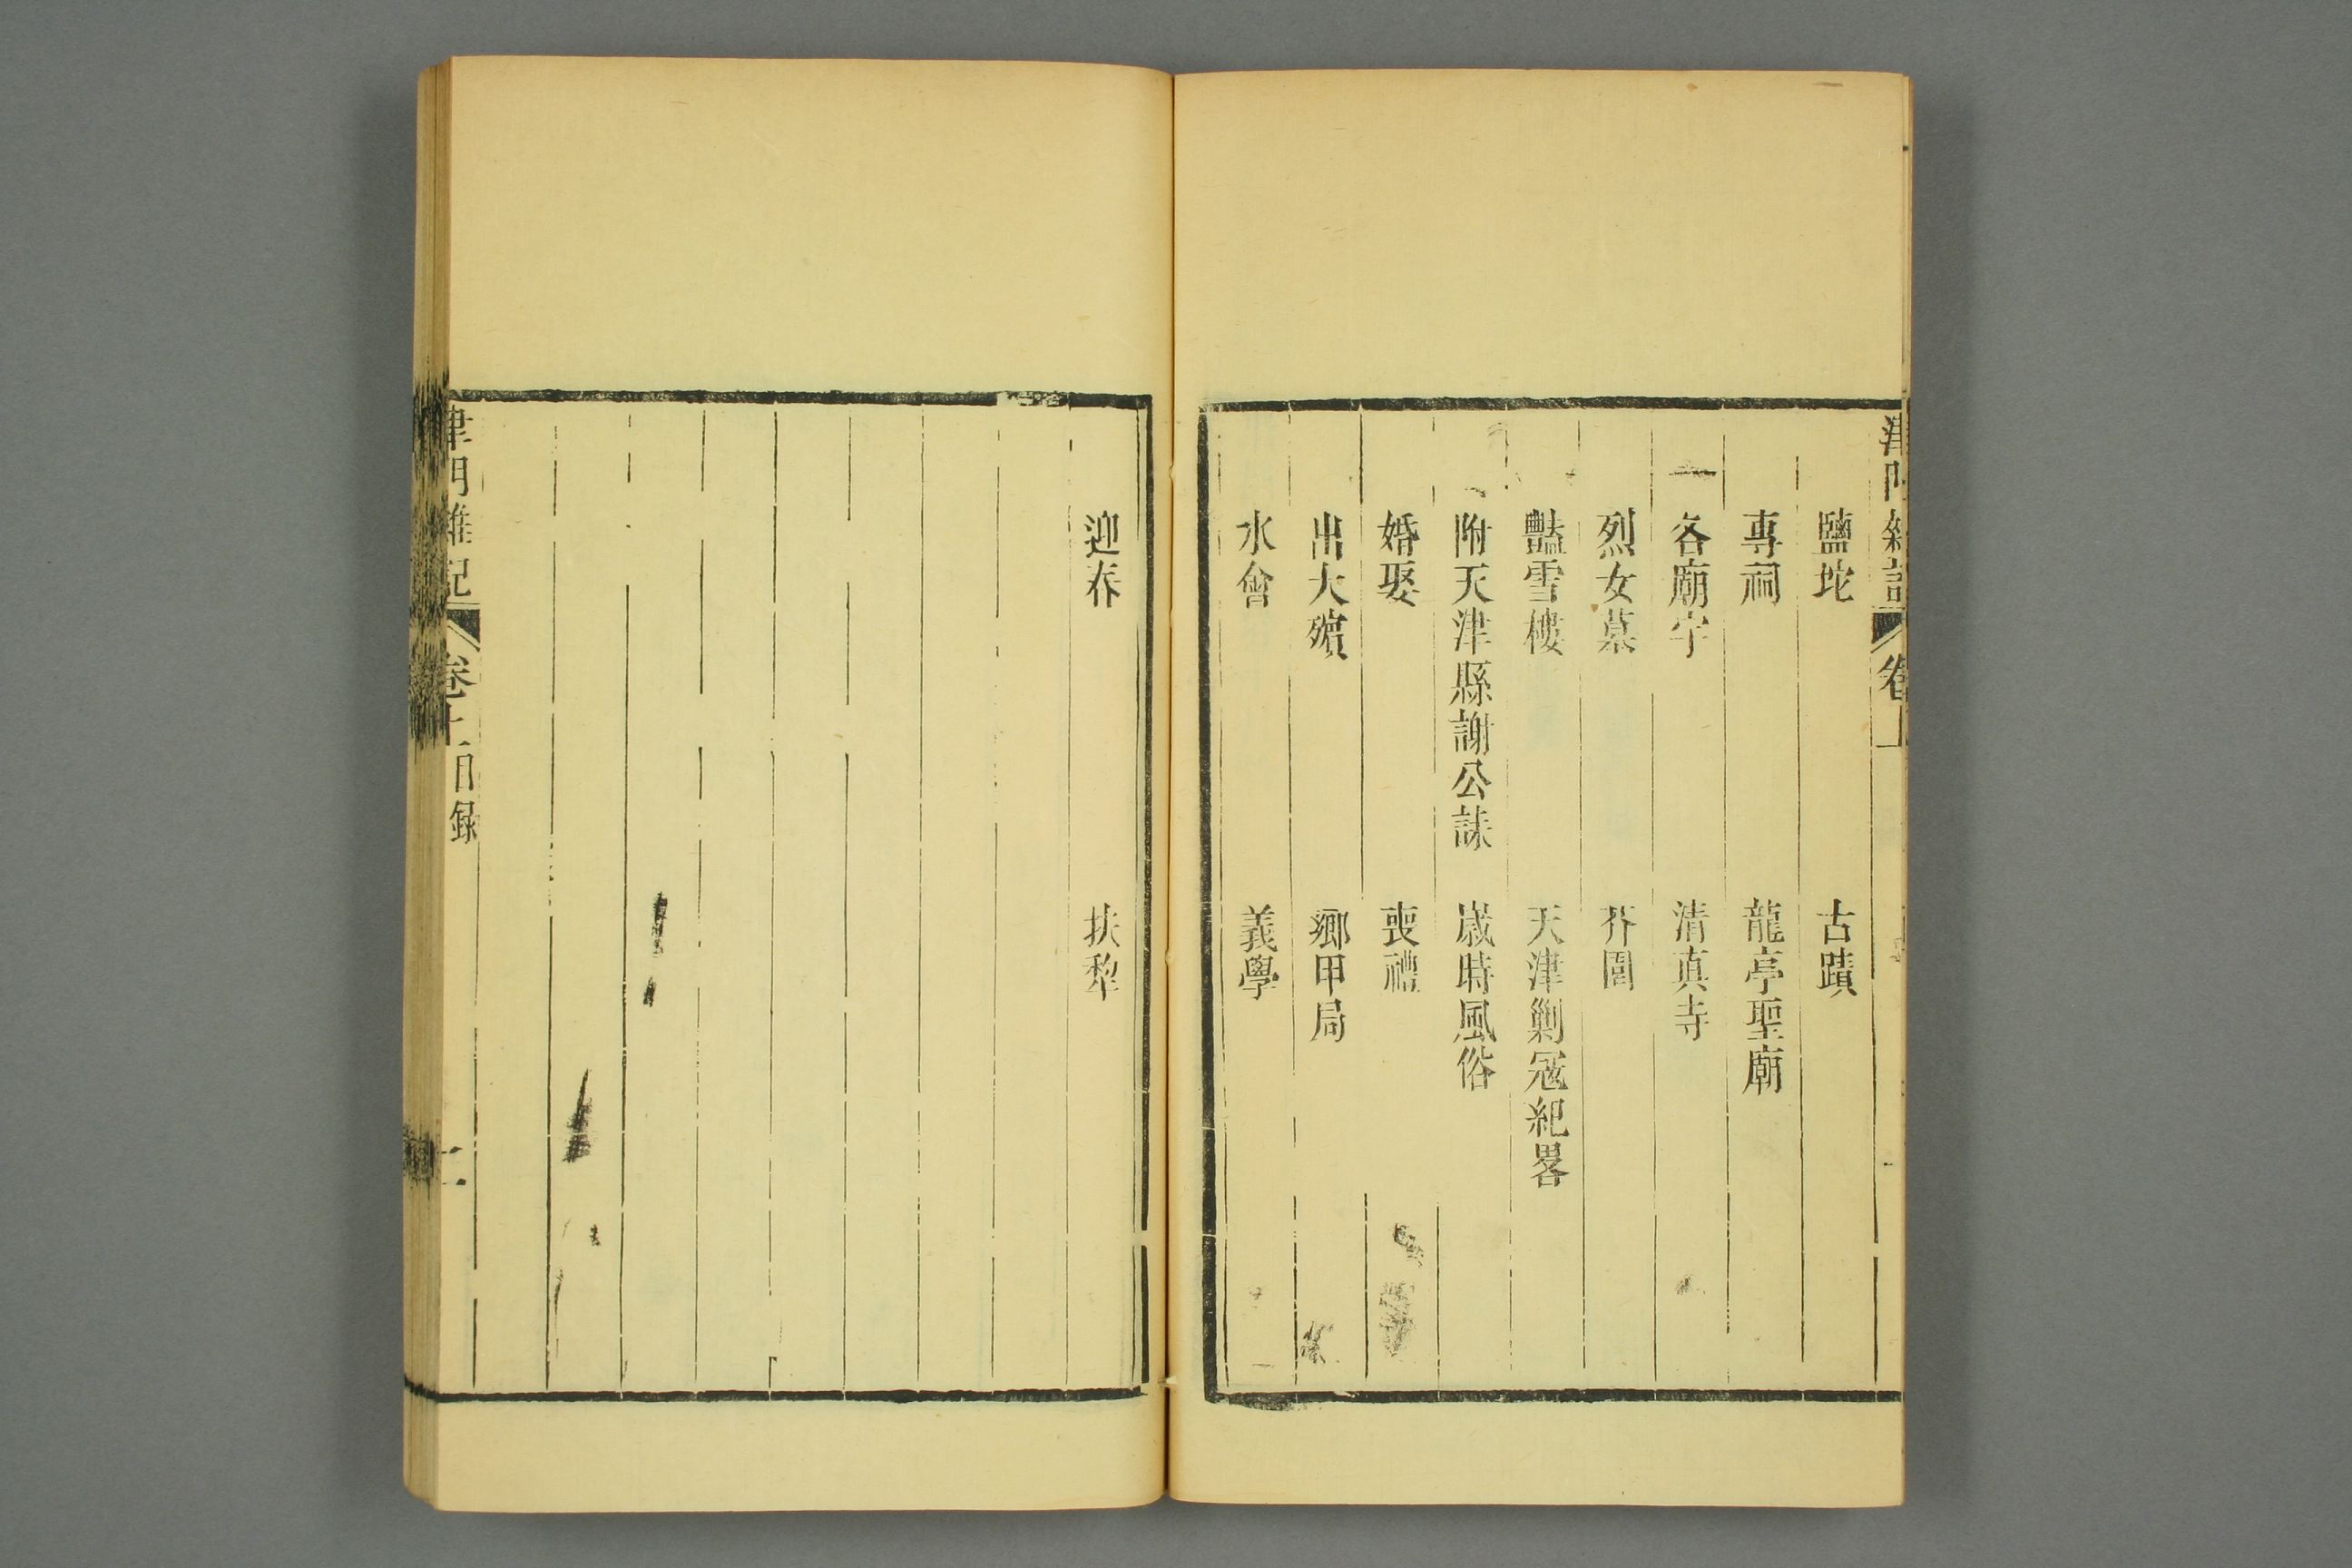 鹽坨　古蹟
專祠　龍亭聖廟
各廟宇　清真寺
烈女墓　芥園
豔雪樓　天津剿冦紀畧
附天津縣謝公誄　歲時風俗
婚娶　喪禮
出大殯　鄉甲局
水會　義學
迎春　扶犂
津門雜記　卷上目錄　二